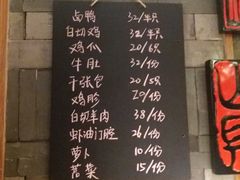 卤鸭 32/半只
白切鸡 32/半只
鸡爪 20/6只
牛肚 32/份
千张包 20/5只
鸡胗 20/份
白切羊肉 38/份
虾油门腔 26/份
萝卜 10/份
莴菜 15/份